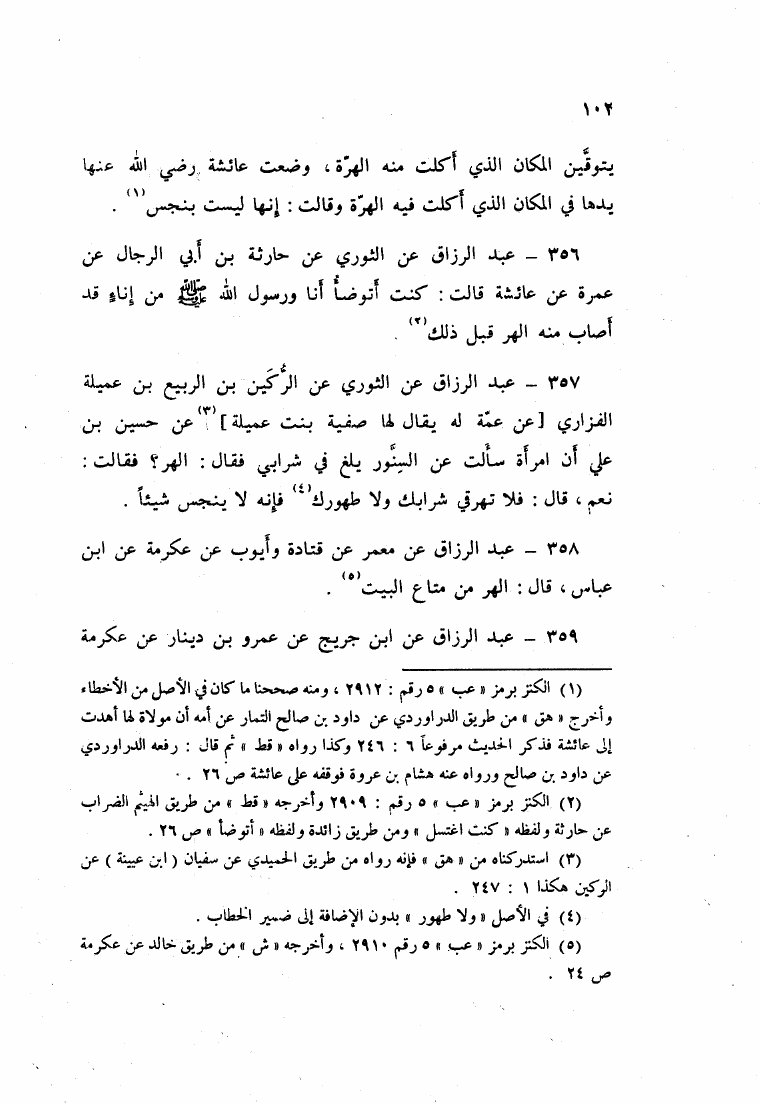 ١٠٢
يتوقَّين المكان الذي أكلت منه الهرّة ، وضعت عائشة رضي الله عنها
يدها في المكان الذي أكلت فيه الهرّة وقالت : إنها ليست بنجس(١) .
٣٥٦ – عبد الرزاق عن الثوري عن حارثة بن أبي الرجال عن
عمرة عن عائشة قالت : كنت أتوضأُ أنا ورسول الله ﷺ من إناءٍ قد
أصاب منه الهر قبل ذلك(٢) .
٣٥٧ – عبد الرزاق عن الثوري عن الرُّكَين بن الربيع بن عميلة
الفزاري [عن عمّة له يقال لها صفية بنت عميلة](٣) عن حسين بن
علي أن امرأة سألت عن السِنَّور يلغ في شرابي فقال : الهر؟ فقالت :
نعم ، قال : فلا تهرقي شرابك ولا طهورك(٤) فإنه لا ينجس شيئاً .
٣٥٨ – عبد الرزاق عن معمر عن قتادة وأيوب عن عكرمة عن ابن
عباس ، قال : الهر من متاع البيت(٥) .
٣٥٩ – عبد الرزاق عن ابن جريج عن عمرو بن دينار عن عكرمة
(١) الكنز برمز « عب » ٥ رقم : ٢٩١٢ ، ومنه صححنا ما كان في الأصل من الأخطاء
وأخرج « هق » من طريق الدراوردي عن داود بن صالح التمار عن أمه أن مولاة لها أهدت
إلى عائشة فذكر الحديث مرفوعاً ٦ : ٢٤٦ وكذا رواه « قط » ثم قال : رفعه الدراوردي
عن داود بن صالح ورواه عنه هشام بن عروة فوقفه على عائشة ص ٢٦ .
(٢) الكنز برمز « عب » ٥ رقم : ٢٩٠٩ وأخرجه « قط » من طريق الهيثم الضراب
عن حارثة ولفظه « كنت اغتسل » ومن طريق زائدة ولفظه « أتوضأ » ص ٢٦ .
(٣) استدركناه من « هق » فإنه رواه من طريق الحميدي عن سفيان ( ابن عيينة ) عن
الركين هكذا ١ : ٢٤٧ .
(٤) في الأصل « ولا طهور » بدون الإضافة إلى ضمير الخطاب .
(٥) الكنز برمز « عب » ٥ رقم ٢٩١٠ ، وأخرجه « ش » من طريق خالد عن عكرمة
ص ٢٤ .